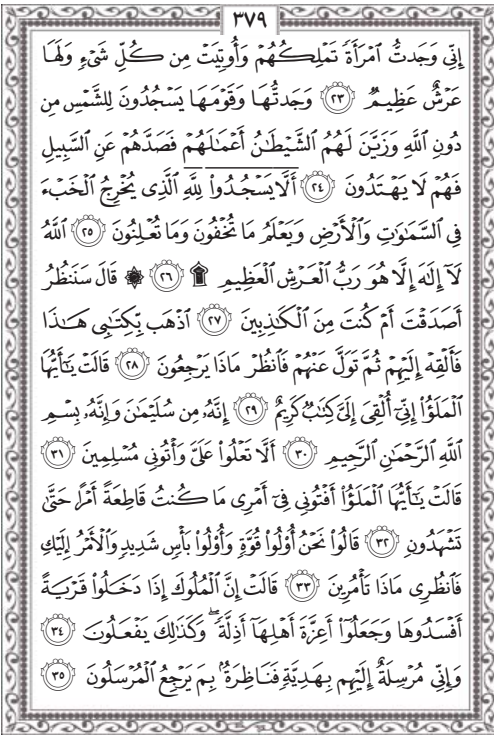 ٣٧٩
إِنِّي وَجَدتُّ ٱمْرَأَةً تَمْلِكُهُمْ وَأُوتِيَتْ مِن كُلِّ شَيْءٍ وَلَهَا
عَرْشٌ عَظِيمٌ ٢٣ وَجَدتُّهَا وَقَوْمَهَا يَسْجُدُونَ لِلشَّمْسِ مِن
دُونِ ٱللَّهِ وَزَيَّنَ لَهُمُ ٱلشَّيْطَٰنُ أَعْمَٰلَهُمْ فَصَدَّهُمْ عَنِ ٱلسَّبِيلِ
فَهُمْ لَا يَهْتَدُونَ ٢٤ أَلَّا يَسْجُدُوا۟ لِلَّهِ ٱلَّذِي يُخْرِجُ ٱلْخَبْءَ
فِي ٱلسَّمَٰوَٰتِ وَٱلْأَرْضِ وَيَعْلَمُ مَا تُخْفُونَ وَمَا تُعْلِنُونَ ٢٥ ٱللَّهُ
لَآ إِلَٰهَ إِلَّا هُوَ رَبُّ ٱلْعَرْشِ ٱلْعَظِيمِ ۩ ٢٦ ۞ قَالَ سَنَنظُرُ
أَصَدَقْتَ أَمْ كُنتَ مِنَ ٱلْكَٰذِبِينَ ٢٧ ٱذْهَب بِّكِتَٰبِي هَٰذَا
فَأَلْقِهْ إِلَيْهِمْ ثُمَّ تَوَلَّ عَنْهُمْ فَٱنظُرْ مَاذَا يَرْجِعُونَ ٢٨ قَالَتْ يَٰٓأَيُّهَا
ٱلْمَلَؤُا۟ إِنِّيٓ أُلْقِيَ إِلَيَّ كِتَٰبٌ كَرِيمٌ ٢٩ إِنَّهُۥ مِن سُلَيْمَٰنَ وَإِنَّهُۥ بِسْمِ
ٱللَّهِ ٱلرَّحْمَٰنِ ٱلرَّحِيمِ ٣٠ أَلَّا تَعْلُوا۟ عَلَيَّ وَأْتُونِي مُسْلِمِينَ ٣١
قَالَتْ يَٰٓأَيُّهَا ٱلْمَلَؤُا۟ أَفْتُونِي فِيٓ أَمْرِي مَا كُنتُ قَاطِعَةً أَمْرًا حَتَّىٰ
تَشْهَدُونِ ٣٢ قَالُوا۟ نَحْنُ أُو۟لُوا۟ قُوَّةٍ وَأُو۟لُوا۟ بَأْسٍ شَدِيدٍ وَٱلْأَمْرُ إِلَيْكِ
فَٱنظُرِي مَاذَا تَأْمُرِينَ ٣٣ قَالَتْ إِنَّ ٱلْمُلُوكَ إِذَا دَخَلُوا۟ قَرْيَةً
أَفْسَدُوهَا وَجَعَلُوٓا۟ أَعِزَّةَ أَهْلِهَآ أَذِلَّةً ۖ وَكَذَٰلِكَ يَفْعَلُونَ ٣٤
وَإِنِّي مُرْسِلَةٌ إِلَيْهِم بِهَدِيَّةٍ فَنَاظِرَةٌۢ بِمَ يَرْجِعُ ٱلْمُرْسَلُونَ ٣٥